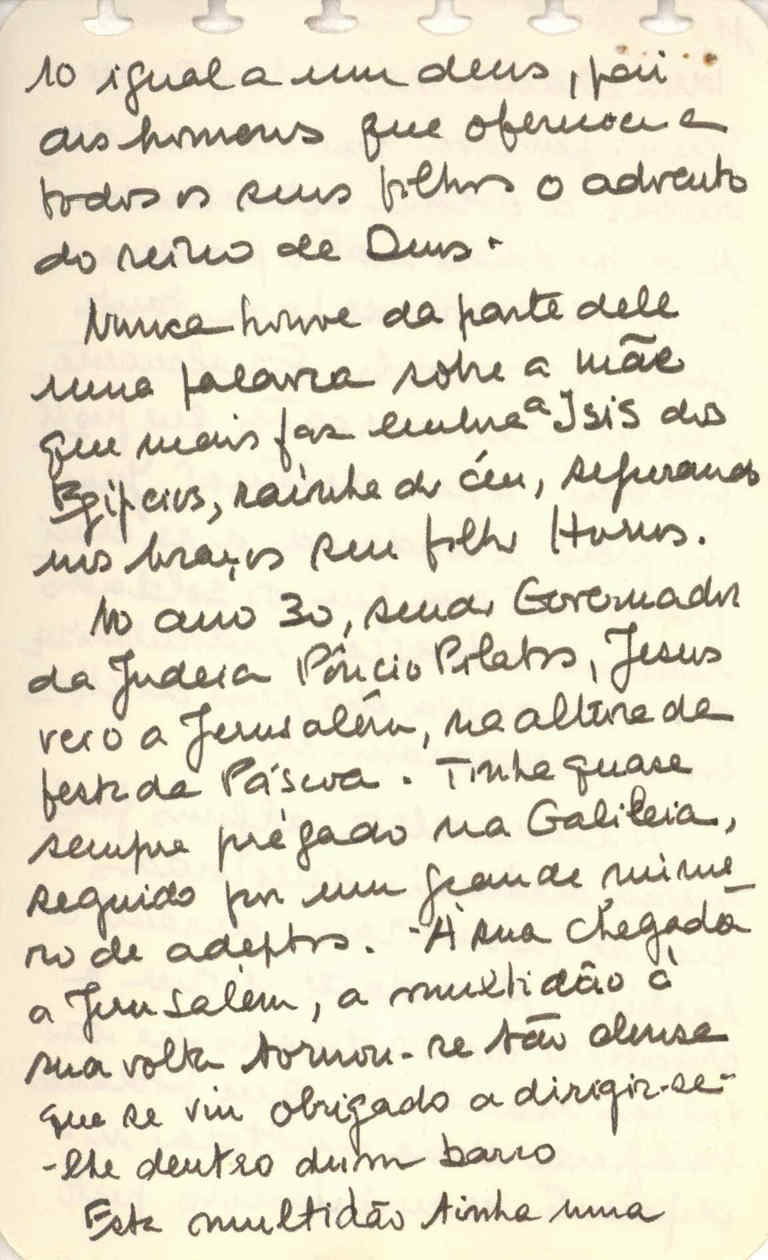 10 igual a um deus, pai
dos homens que ofereceu a
todos os seus filhos o advento
do reino de Deus.
Nunca houve da parte dele
uma palavra sobre a mãe
que mais faz lembrar a Isis dos
Egipcios, rainha do céu, segurando
nos braços seu filho Horus.
No ano 30, sendo Governador
da Judeia Pôncio Pilatos, Jesus
veio a Jerusalém, na altura da
festa da Páscoa. Tinha quase
sempre prégado na Galileia,
seguido por um grande núme-
ro de adeptos. À sua chegada
a Jerusalém, a multidão à
sua volta tornou-se tão densa
que se viu obrigado a dirigir-se-
-lhe dentro dum barco
Esta multidão tinha uma